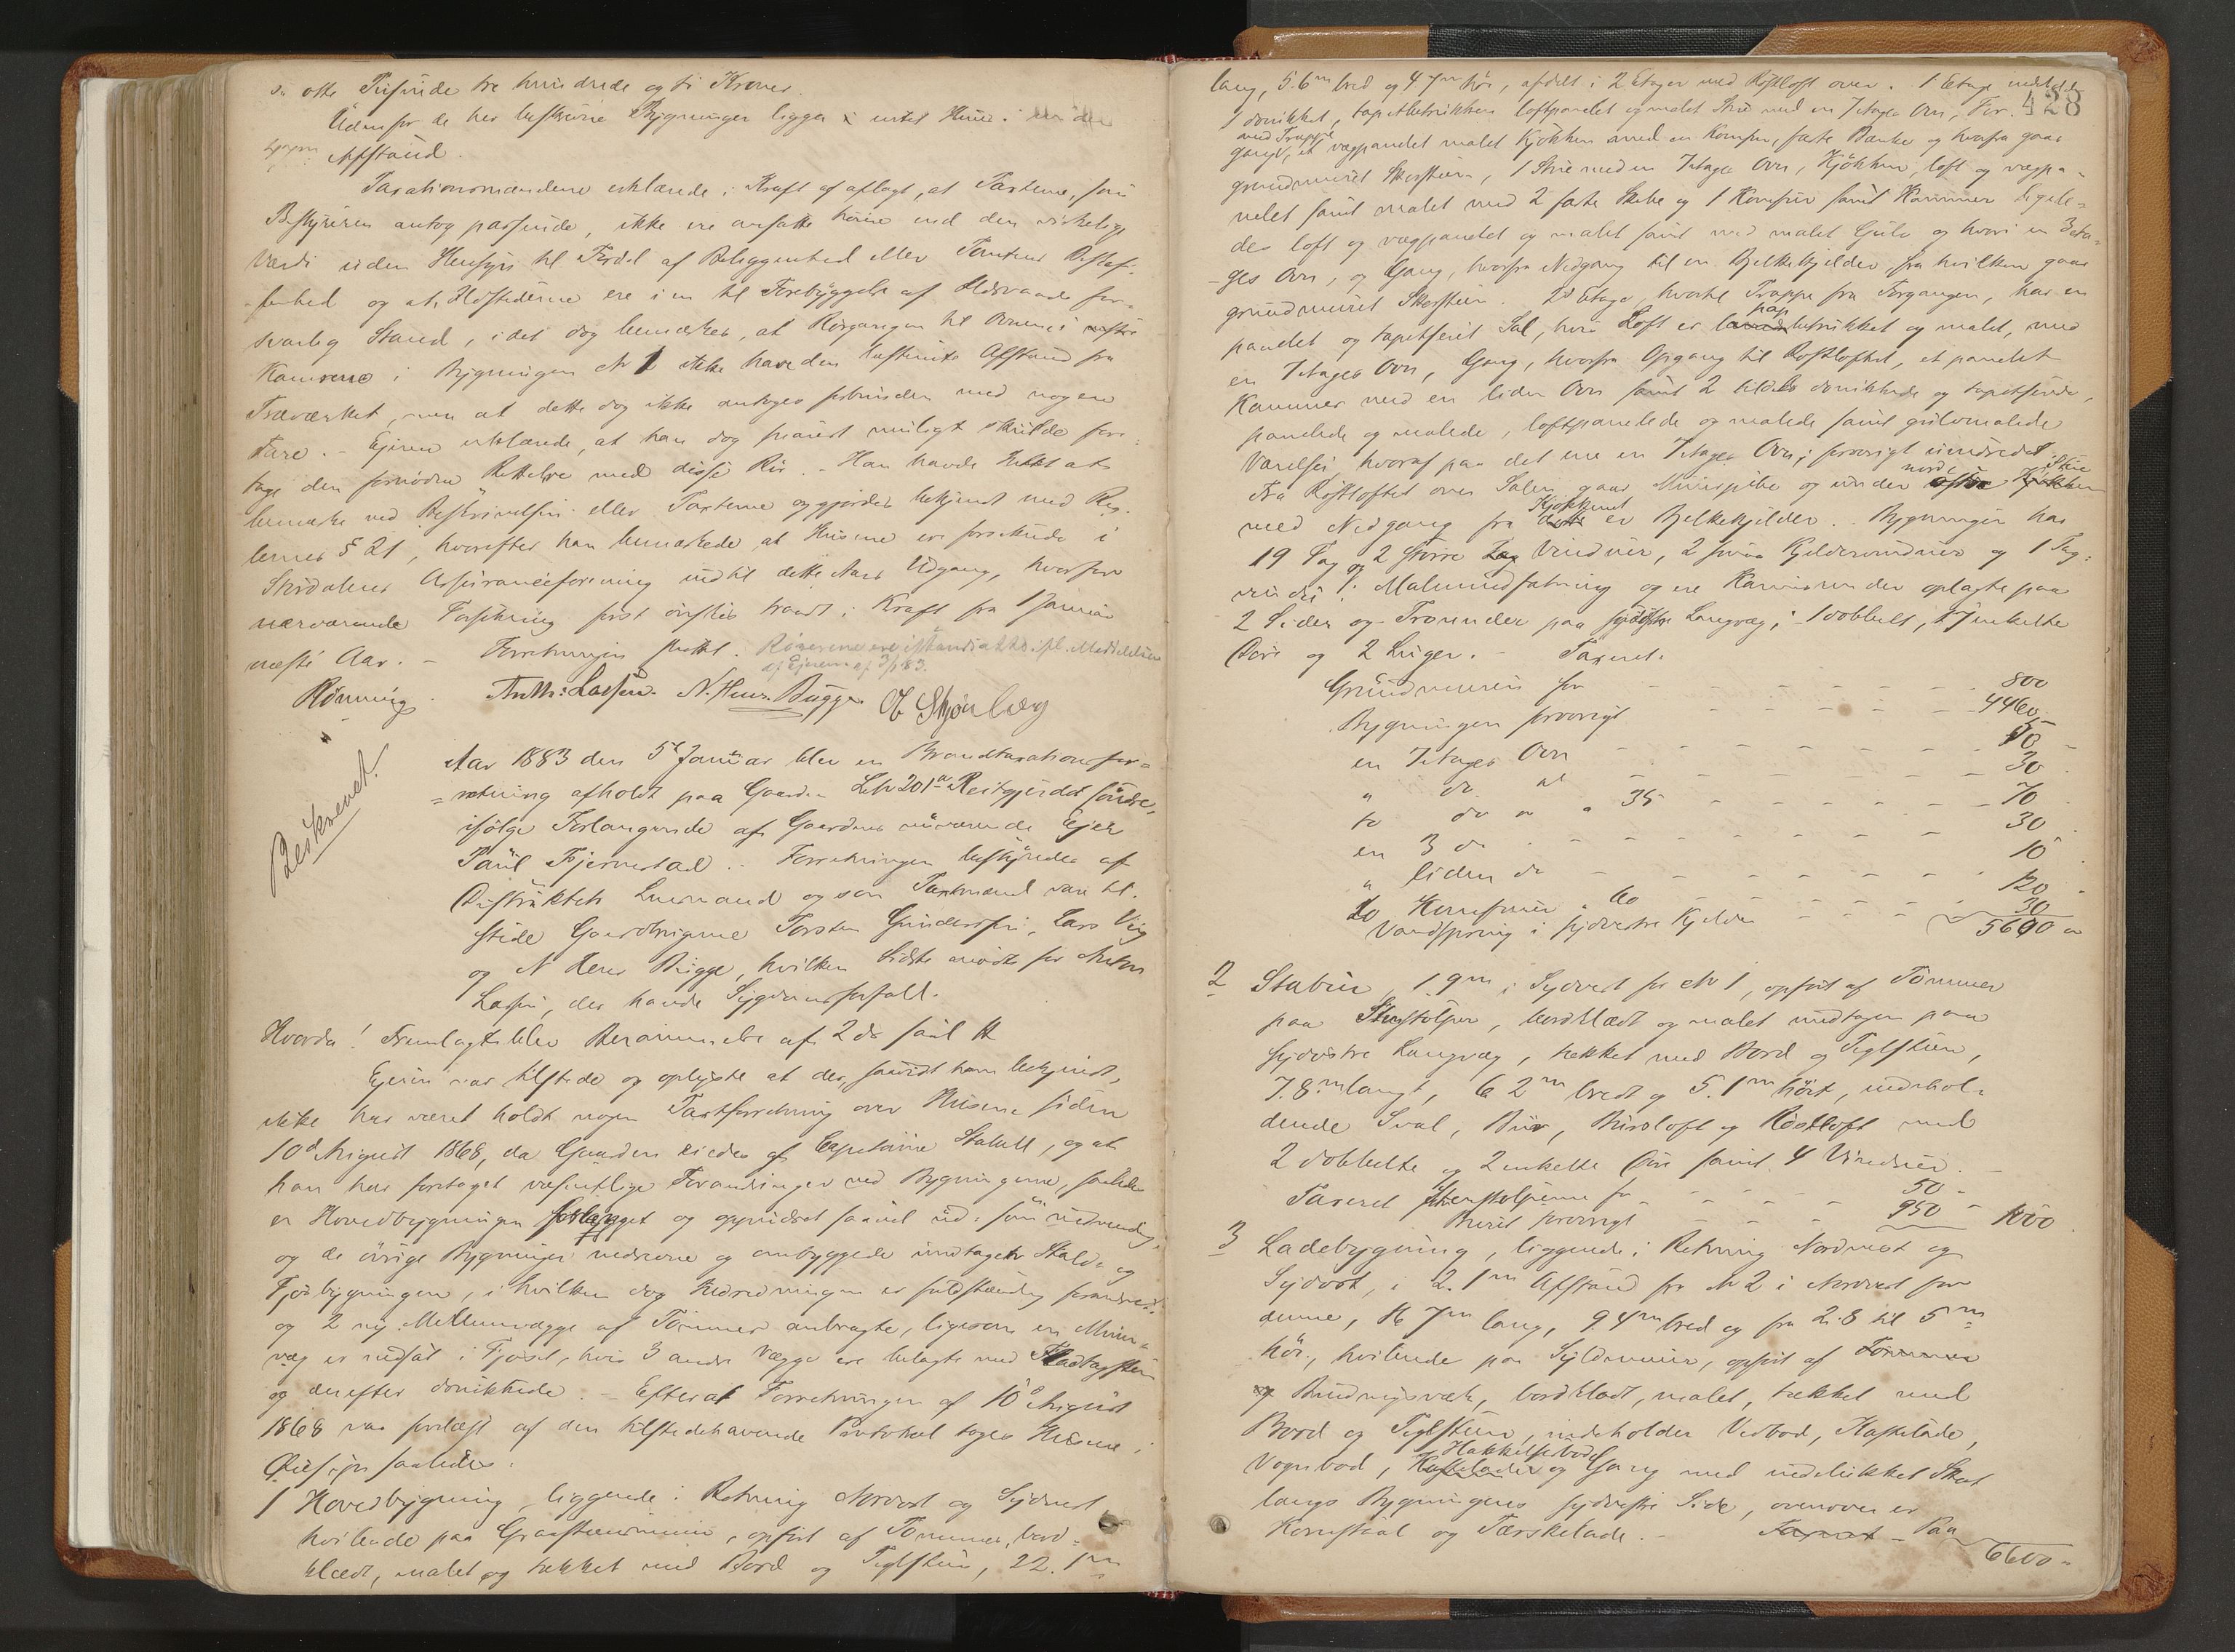 otte Tusinde tre hundrede og ti Kroner.
Udenfor de her beskrevne Bygninger ligger intet Huus i
Afstand.
Taxationsmændene erklærede i Kraft af aflagt, at Taxterne, som
Bestyreren antog passende, ikke ere ansatte høiere end den virkelige
Værdi uden Hensyn til Fordel af Beliggenhed eller Tomtens Beskaf-
fenhed og at Ildstederne ere i en til Forebyggelse af Ildsvaade for-
svarlig Stand, idet dog bemærkes, at Rørgangen til Ovnene i
Kamrene i Bygningen No 1 ikke have den bestemte Afstand fra
Træværket, men at dette dog ikke antoges forbunden med nogen
Fare. - Ejeren erklærede, at han dog snarest muligt skulde fore-
tage den fornødne Rettelse med disse Rør. - Han havde Intet at
bemærke ved Beskrivelsen eller Taxterne og gjordes bekjendt med Reg-
lernes § 21, hvorefter han bemærkede at Husene ere forsikrede i
Stördalens Assuranceforening indtil dette Aars Udgang, hvorfor
nærværende Forsikring först önskes traadt i Kraft fra 1 Januar
næste Aar. - Forretningen sluttet. Rörerne ere istandsatte
af Ejeren af 3/1 83.
Rönning. Anth: Lassen. N. Henr. Bugge O Skjönberg
Beskrevet.
Aar 1883 den 5te Januar blev en Brandtaxationsfor-
retning afholdt paa Gaarden LNo 201a Reitgjerdet söndre,
ifölge Forlangende af Gaardens nuværende Ejer
Paul Fjermestad. - Forretningen bestyredes af
Distriktets Lensmand og som Taxtmænd vare til-
stede Gaardbrugerne Torsten Gundersen, Lars Vig
og N Henr Bugge, hvilken Sidste mödte for Anton
Lassen, der havde Sygdomsforfald.
Hvorda! Fremlagt blev Berammelse af 2 ds saal
Ejeren var tilstede og oplyste at der, saavidt ham bekjendt,
ikke har været holdt nogen Taxtforretning over Husene siden
10de August 1868, da Gaarden eiedes af Capitaine Stabell, og at
han har foretaget væsentlige Forandringer ved Bygningerne, saaledes
er Hovedbygningen forlænget og oppudset saavel ud- som indvendig,
og de övrige Bygninger nedrevne og ombyggede undtagen Stald- og
Fjösbygningen, i hvilken dog Indredningen er fuldstændig forandret
og 2 nye Mellemvægge af Tömmer anbragte, ligesom en Muur-
væg er indsat i Fjöset, hvis 3 andre Vægge ere belagte med Fladtagsten
og derefter donikkede. - Efterat Forretningen af 10de August
1868 var forelæst af den tilstedehavende Protokol toges Husene i
Öiesyn saaledes:
1 Hovedbygning, liggende i Retning Nordost og Sydvest
hvilende paa Graasteensmuur, opfört af Tömmer, bord-
klædt, malet og tækket med Bord og Teglsteen, 22.1m
428
lang, 5.6m bred og 4 7m höi, afdelt i 2 Etager med Röstloft over. 1 Etage indeholder
1 donikket, tapetbetrukken loftpanelet og malet Stue med en 2etages Ovn, For-
med Trappe
gang, et vægpanelet malet Kjökken med en Komfur, faste Bænke og hvorfra gaar
grundmuret Skorsteen, 1 Stue med en 2etages Ovn, Kjökken, loft og vægpa-
nelet samt malet med 2 faste Skabe og 1 Komfur samt Kammer ligele-
des loft og vægpanelet og malet samt med malet Gulv og hvori en 3eta-
ges Ovn, og Gang, hvorfra Nedgang til en Bjelkekjelder, fra hvilken gaar
grundmuret Skorsteen. 2d Etage, hvortil Trappe fra Forgangen, har en
pap
panelet og tapetseret Sal, hvis Loft er betrukket og malet, med
en 2etages Ovn, Gang, hvorfra Opgang til Röstloftet, et panelet
Kammer med en liden Ovn samt 2 tildels donikkede og tapetserede,
panelede og malede, loftpanelede og malede samt gulvmalede
Værelser, hvoraf paa det ene en 2etages Ovn, forövrigt uindredet.
Fra Röstloftet over Salen gaar Muurpibe og under nordre Stue
Kjökkenet
med Nedgang fra er Bjelkekjelder. - Bygningen har
19 Fag og 2 större Vinduer, 2 smaa Kjeldervinduer og 1 Tag-
vindu i Malmindfatning og ere Karmerne oplagte paa
2 Sider og Tvorinder paa sydöstre Langvæg, 1 dobbelt, enkelte
Döre og 2 Luger. - Taxeret.
Grundmuren for - - - 800
Bygningen forövrigt - - - 4460
en 2etages Ovn - - - 50
" do - - - 30
to do a " 35 - - - 70
en 3 do - - - 30
" liden do - - - 10
to Komfurer a 60 - - - 120
Vandspring i sydvestre Kjelder - - - 30
5600
2 Stabur, 1 9m i Sydvest for No 1, opfört af Tömmer
paa Steenstolper, bordklædt og malet undtagen paa
sydvestre Langvæg, tækket med Bord og Teglsteen,
7.8m langt, 6 2m bredt og 5.1m höit, indehol-
dende Sval, Buur, Buursloft og Röstloft med
2 dobbelte og 2 enkelte Döre samt 4 Vinduer. -
Taxeret Steenstolperne for - - - 50 -
Buret forövrigt - - - 950 - 1000
3 Ladebygning, liggende i Retning Nordvest og
Sydost, i 2.1m Afstand fra No 2 i Nordvest for
denne, 16 7m lang, 9 4m bred og fra 2.8 til 5m
höi, hvilende paa Syldmuur, opfört af Tömmer
og Bindingsværk, bordklædt, malet, tækket med
Bord og Teglsteen, indeholder Vedbod, Høstelade,
Hakkelsebod
Vognbod, og Gang med indelukket Skot
langs Bygningens sydvestre Side, ovenover er
Kornstaal og Tærskelade. - Taxeret - Paa
6600 -